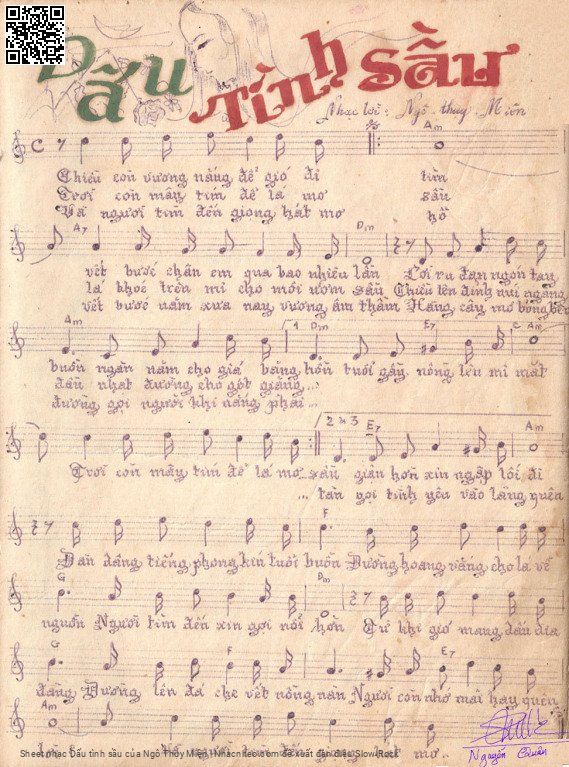 Dấu Tình Sầu
Nhạc lời: Ngô-thụy-Miên
Am
Chiều còn vương nắng để gió đi tìm
Trời còn mây tím để lá mơ sầu
Và người tìm đến giọng hát mơ hồ
A7 Dm
vết bước chân em qua bao nhiêu lần Lời ru đan ngón tay
lá khóc trên mi cho môi ươm sầu Chiều lên đỉnh núi ngang
vết bước năm xưa nay vương âm thầm Hàng cây mơ bóng
Am 1 Dm E7 Am
buồn ngàn năm cho giá băng hồn tuổi gầy nồng lên mi mắt
đầu nhạt đường cho gót
đường gọi người khi nắng phai...
2 x 3 E7 Am
Trời còn mây tím để lá mơ sầu giận hờn xin ngập lối đi
... tàn gọi tình yêu vào lãng quên
F
Đàn dâng tiếng phong kín tuổi buồn Đường hoang vắng cho lá về
G Dm
nguồn Người tìm đến xin gọi nỗi hờn Từ khi gió mang dấu địa
G F E7
đàng Đường lên đá che vết nồng nàn Người còn nhớ mãi hay quên
Am
Sheet nhạc Dấu tình sầu của Ngô Thụy Miên | Nhacnheo.com đề xuất đàn điệu Slow Rock
Nguyễn Quân